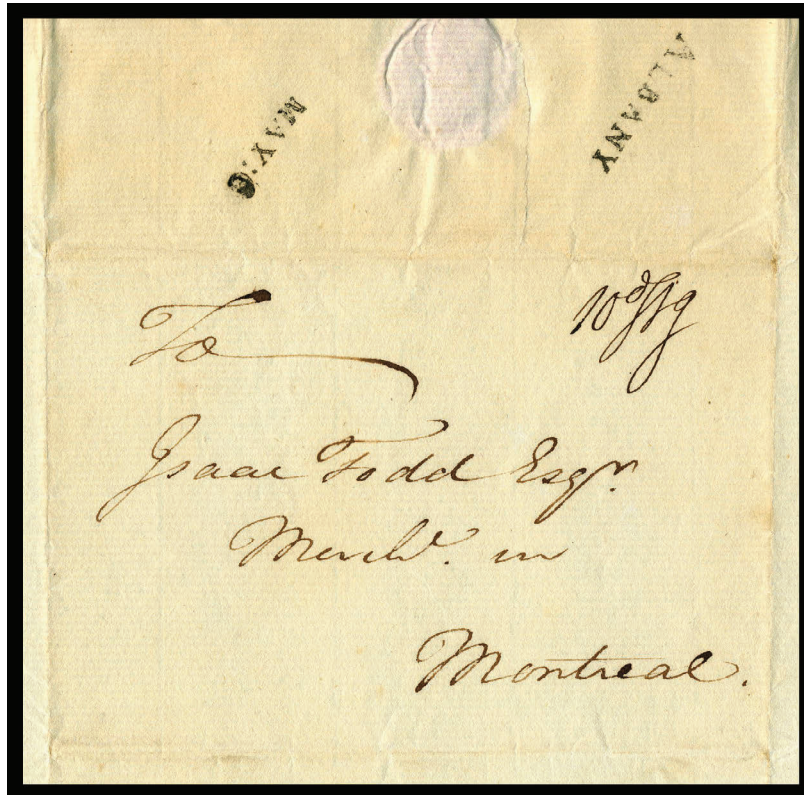 MAY·6
ALBANY
To
Isaac Todd Esqr.
Mercht. in
Montreal.